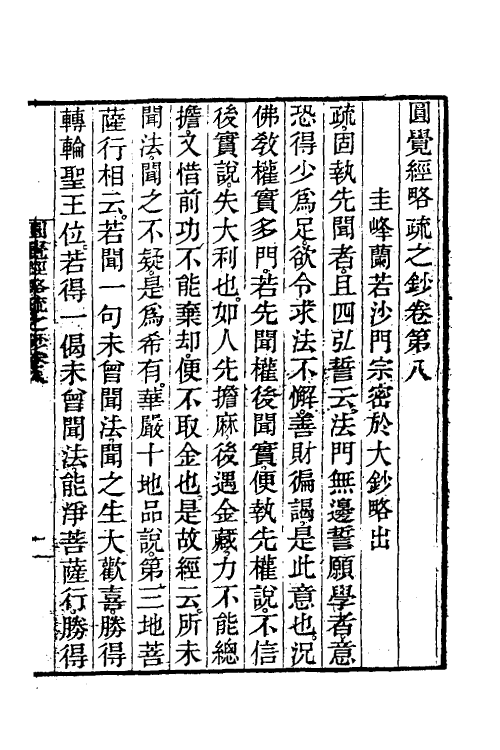 圓覺經略疏之鈔卷第八
圭峰蘭若沙門宗密於大鈔略出
疏固執先聞者。且四弘誓云。法門無邊誓願學者。意
恐得少爲足。欲令求法不懈。善財徧謁。是此意也。況
佛敎權實多門。若先聞權後聞實。便執先權說。不信
後實說。失大利也。如人先擔麻後遇金藏。力不能總
擔。又惜前功不能棄却。便不取金也。是故經云。所未
聞法。聞之不疑。是爲希有。華嚴十地品說。第三地菩
薩行相云。若聞一句未曾聞法。聞之生大歡喜。勝得
轉輪聖王位。若得一偈未曾聞法。能淨菩薩行。勝得
圓覺經略疏之鈔卷八